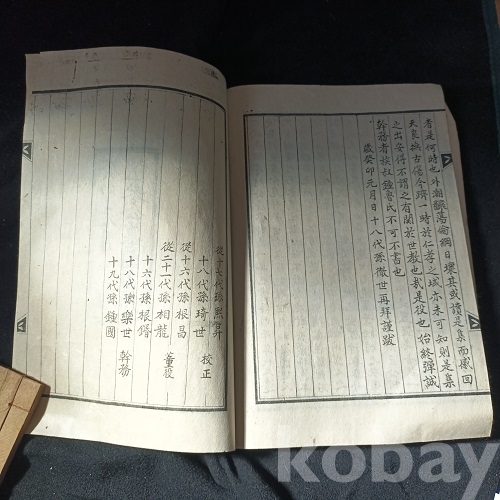 者是何時也外潮醸蕩倫綱日壞其或讀是集而感回
天良撫古傷今躋一時於仁孝之域亦未可知則是集
之出安得不謂之有關於世敎也哉是役也始終殫誠
幹務者族叔鍾魯氏不可不書也
歲癸卯元月日十八代孫徹世再拜謹跋
從十六代孫熙昇
十八代孫琦世 校正
從十六代孫根昌
從二十代孫相龍 董役
十六代孫根
十八代孫樂世 幹務
十九代孫鍾圓
kobay